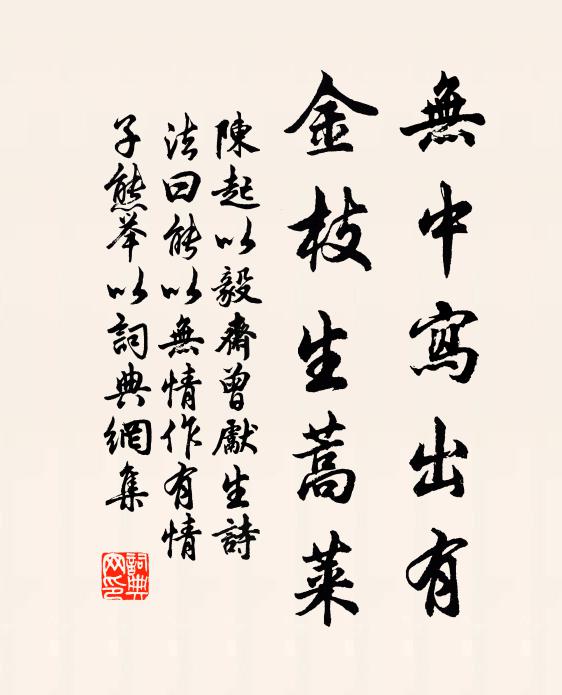 無中寫出有
金枝生蒿萊
陳起以毅齋曾獻生詩
法曰能以無情作有情
子熊举以詞典網集
詞典
网印